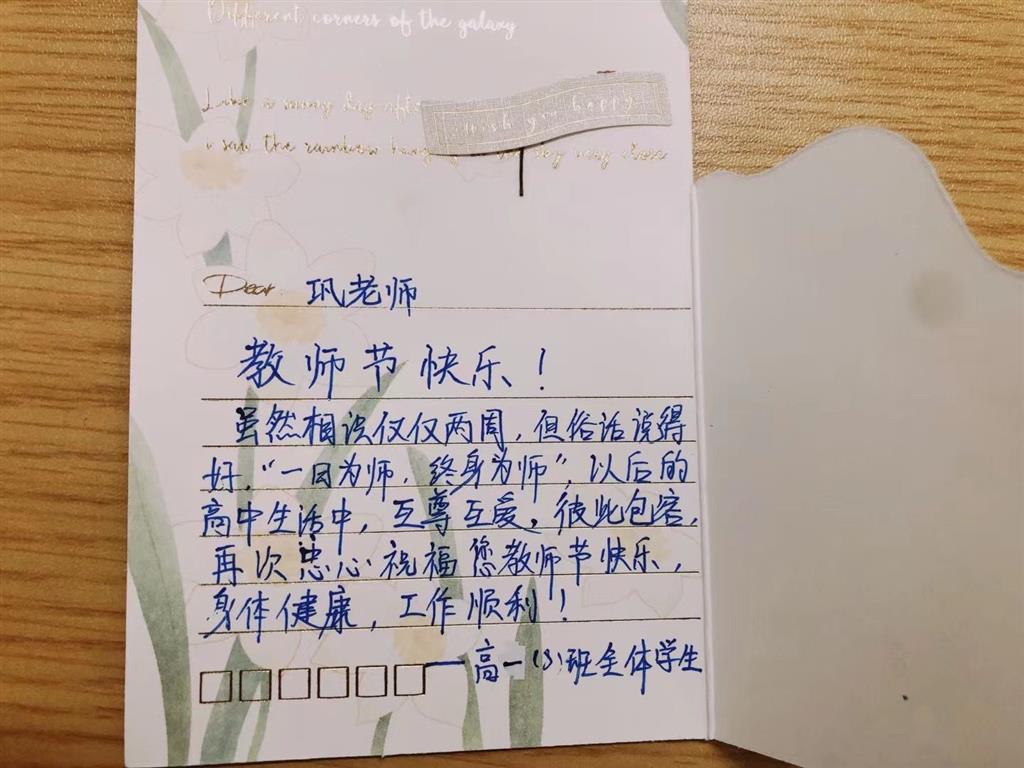 Different corners of the galaxy
Like a sunny day after
wish you happy
i saw the rainbow hang sky very close
Dear 巩老师
教师节快乐！
虽然相识仅仅两周，但俗话说得
好，“一日为师，终身为师”，以后的
高中生活中，互尊互爱，彼此包容，
再次忠心祝福您教师节快乐，
身体健康，工作顺利！
——高一(8)班全体学生